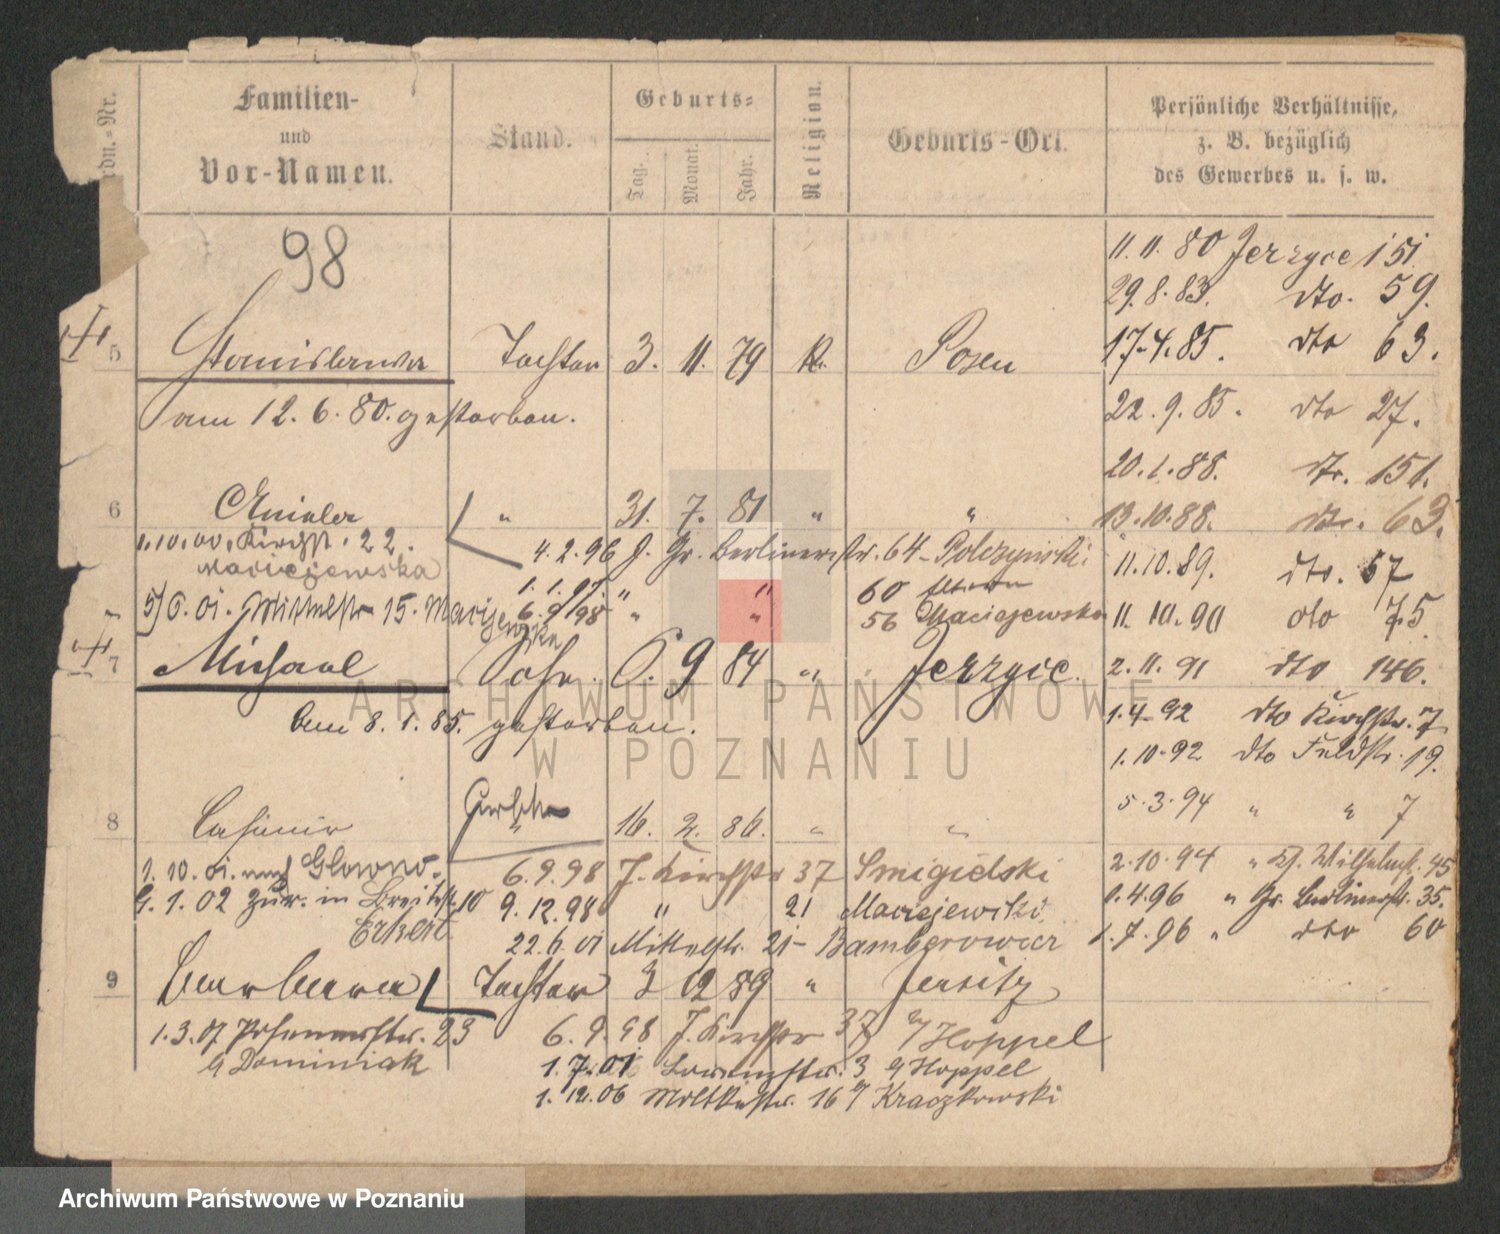 Ordn.-Nr.
Familien-
und
Vor-Namen.
Stand.
Geburts-
Tag.
Monat.
Jahr.
Religion.
Geburts-Ort.
Persönliche Verhältnisse,
z. B. bezüglich
des Gewerbes u. s. w.
98
11. 11. 80 Jerzyce 151
29. 8. 83. dto. 59.
5 Stanislawa Tochter 3. 11. 79 k. Posen
17. 4. 85. dto 63.
am 12. 6. 80. gestorben.
22. 9. 85. dto 27.
20. 1. 88. dto. 151.
6 Aniela " 31. 7. 81 " "
13. 10. 88. dto. 63.
1.10.00. Kirchst. 22.
Maciejewska
4. 2. 96 J. Gr. Berlinerstr. 64 - Polczynski
11. 10. 89. dto. 57
1. 1. 97. " " 60
5/6. 01. Mittelstr 15. Maciejewska
6. 9. 98 " " 56 Maciejewska
11. 10. 90 dto 75
7 Michael Sohn. 6. 9 84 " " Jerzyce.
2. 11. 91 dto 146.
am 8. 1. 85. gestorben.
1. 4. 92 dto Kirchstr. 7
1. 10. 92 dto Feldstr. 19.
5. 3. 94 " " 7
8 Casimir " 16. 2. 86. " "
1. 10. 01. nach Glowno.
6. 9. 98 J. Kirchstr 37 Smigielski
2. 10. 94 " Wilhelmst. 45
9. 1. 02 zur. in Breitest. 10
Erkert
9. 12. 98 " 21 Maciejewski
1. 4. 96 " Gr. Berlinerstr. 35.
22. 6. 01 Mittelstr. 21 - Bamberowicz
1. 7. 96 " dto 60
9 Barbara Tochter 3 12 89 " Jersitz
1. 3. 07 Posenerstr. 23
6. 9. 98 J. Kirchstr 37 b/ Hoppel
b/ Dominiak
1. 7. 01 3 b/ Hoppel
1. 12. 06 Moltkestr. 16 b/ Kraczkowski
ARCHIWUM PAŃSTWOWE
W POZNANIU
Archiwum Państwowe w Poznaniu